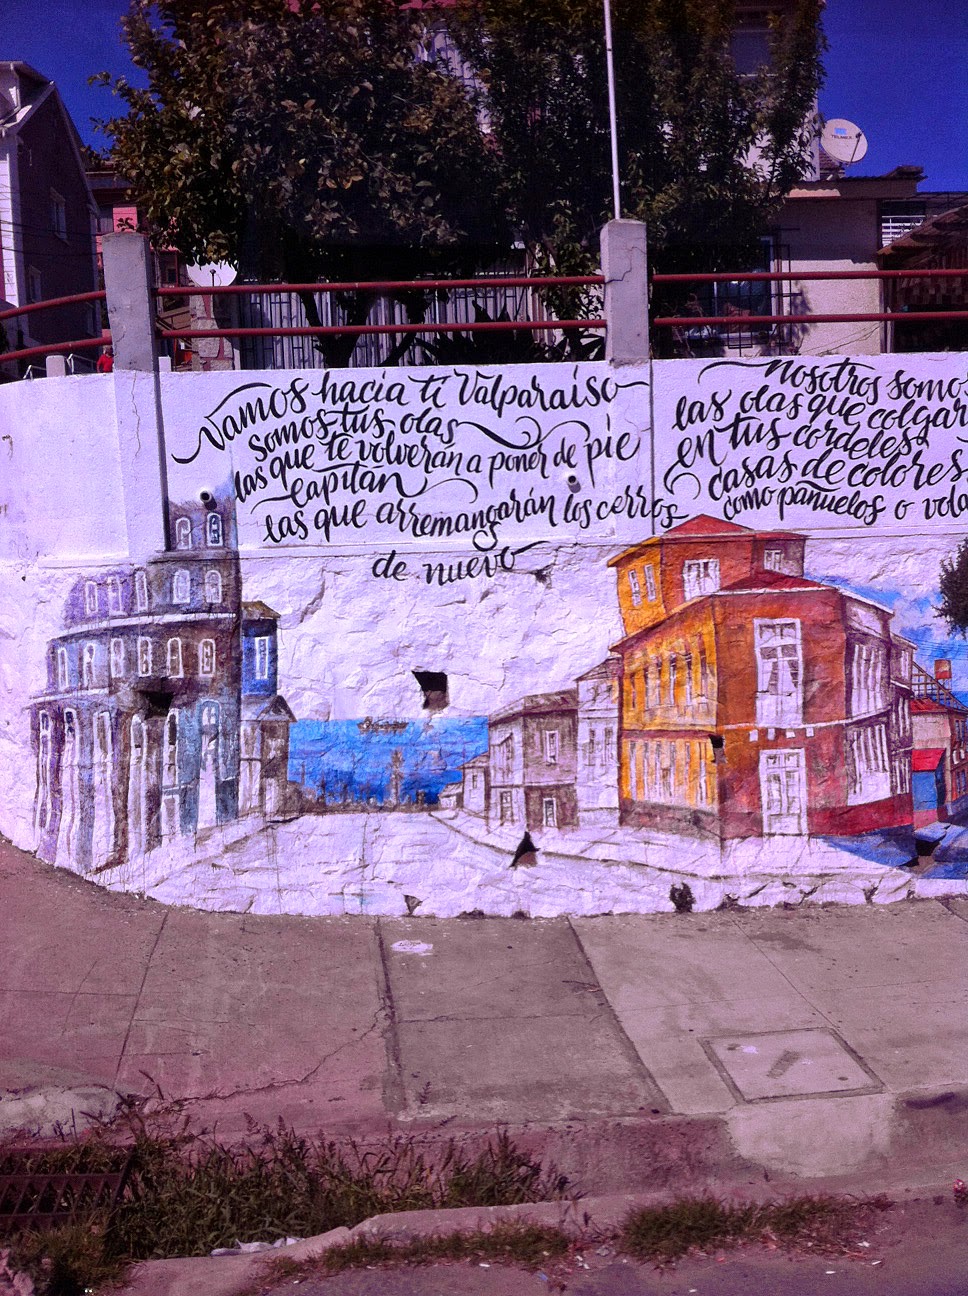 Vamos hacia ti Valparaíso
somos tus olas
las que te volverán a poner de pie
capitán
las que arremangarán los cerros
de nuevo
Nosotros somos
las olas que colgar
en tus cordeles
casas de colores
como pañuelos o vola